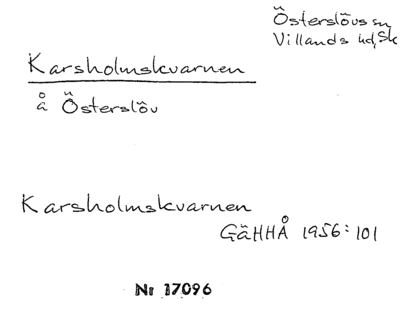 Österslövs sn
Villands hd, Sk
Karsholmskvarnen
å Österslöv
Karsholmskvarnen
GäHHÅ 1956:101
Nr 17096